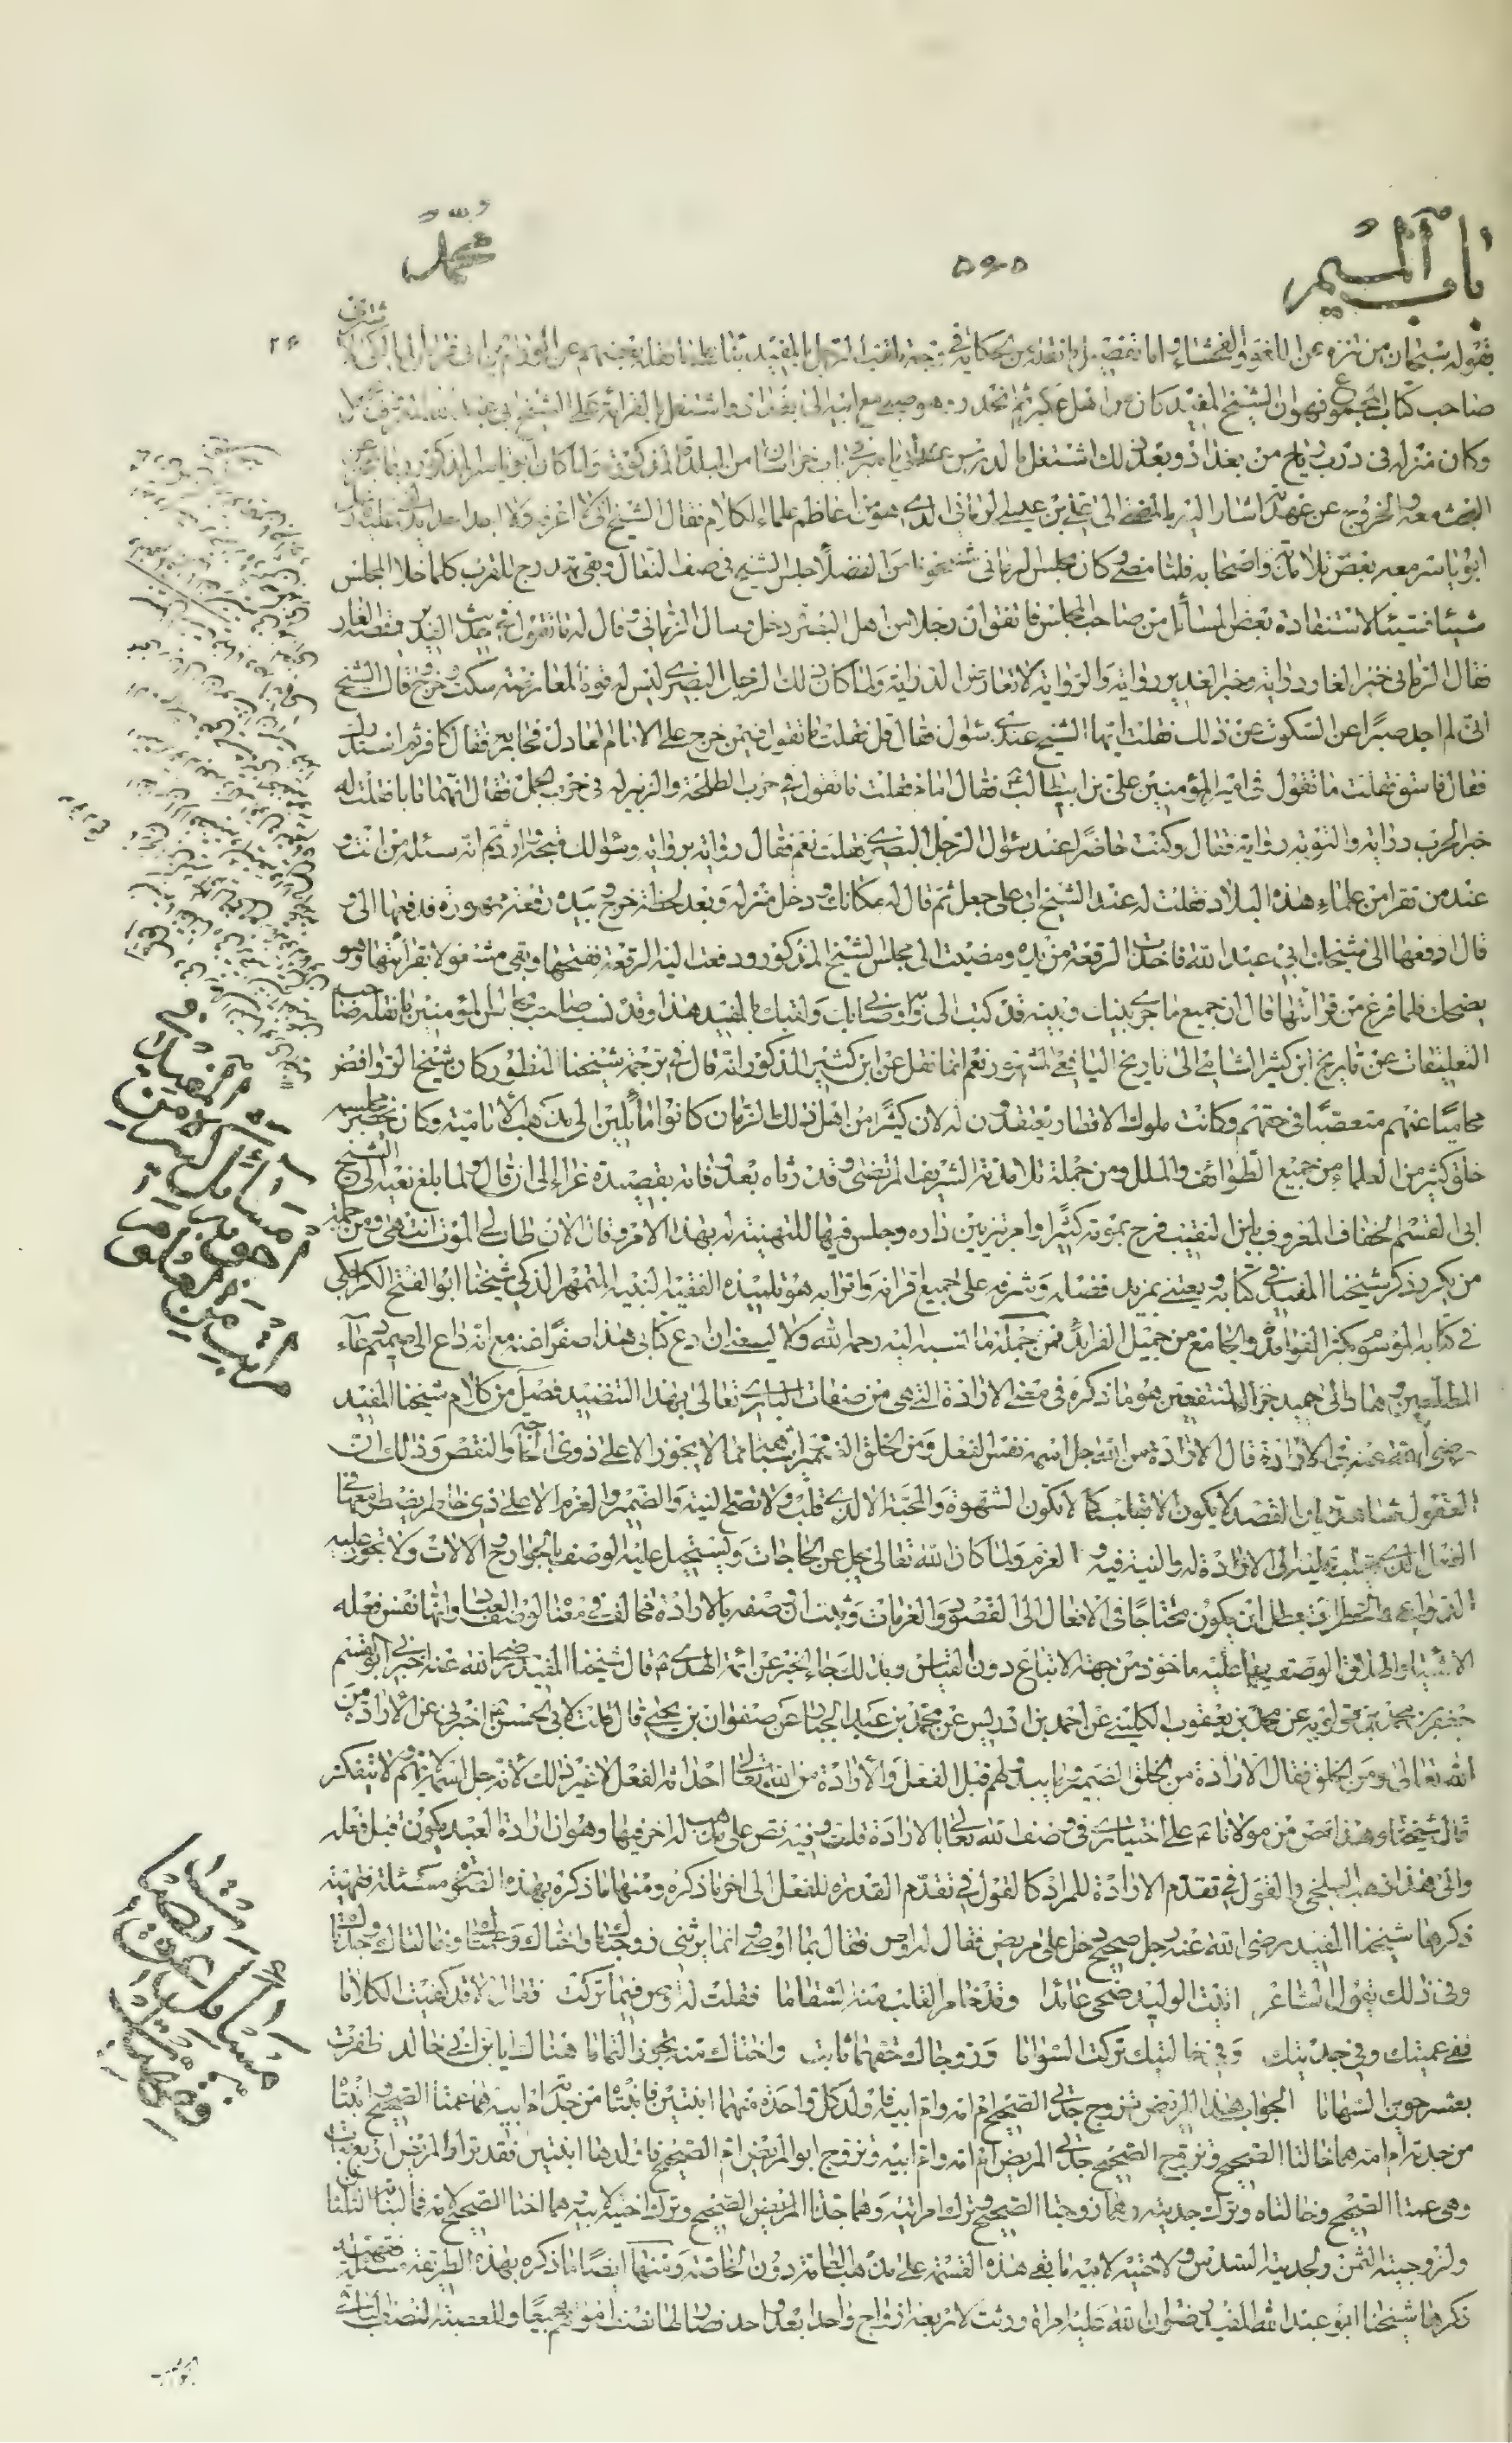 باب الميم
۵۶۵
محمد
بقوله سبحان من تنزه عن اللغو والفحشاء واما تفصيل ما نقله من الحكاية في وجه تلقب الرجل بالمفيد
صاحب كتاب المجموع فهو ان الشيخ المفيد كان من اهل عكبر ثم انحدر وهو صبي مع ابيه الى بغداد واشتغل بالقرائة على الشيخ ابي عبد الله
وكان منزله في درب رياح من بغداد وبعد ذلك اشتغل بالدرس عند ابي ياسر في باب خراسان من البلدة المذكورة ولما كان ابو ياسر المذكور ربما عجز عن
البحث معه والخروج عن عهدته اشار اليه بالمضي الى علي بن عيسى الرماني الذي هو من اعاظم علماء الكلام فقال الشيخ اني لا اعرفه ولا اجد احدا يدلني عليه فارسل
ابو ياسر معه بعض تلامذته واصحابه فلما مضى وكان مجلس الرماني مشحونا من الفضلاء جلس الشيخ في صف النعال وبقي يتدرج للقرب كلما خلا المجلس
شيئا فشيئا لاستفادة بعض المسائل من صاحب المجلس فاتفق ان رجلا من اهل البصرة دخل وسال الرماني وقال له ما تقول في حديث الغدير وقصة الغار
فقال الرماني خبر الغار دراية وخبر الغدير رواية والرواية لا تعارض الدراية ولما كان ذلك الرجل البصري ليس له قوة المعارضة سكت وخرج وقال الشيخ
اني لم اجد صبرا عن السكوت عن ذلك فقلت ايها الشيخ عندي سؤال فقال قل فقلت ما تقول فيمن خرج على الامام العادل فحاربه فقال كافر ثم استدرك
فقال فاسق فقلت ما تقول في امير المؤمنين علي بن ابيطالب فقال امام فقلت ما تقول في حرب طلحة والزبير له في حرب الجمل فقال انهما تابا فقلت له
خبر الحرب دراية والتوبة رواية فقال وكنت حاضرا عند سؤال الرجل البصري فقلت نعم فقال رواية برواية وسؤالك متجه وارد ثم انه سئله من انت و
عند من تقرا من علماء هذه البلاد فقلت له عند الشيخ ابي علي جعل ثم قال له مكانك ودخل منزله وبعد لحظة خرج وبيده رقعة ممهورة فدفعها الي و
قال ادفعها الى شيخك ابي عبد الله فاخذت الرقعة من يده ومضيت الى مجلس الشيخ المذكور ودفعت اليه الرقعة ففتحها وبقي مشغولا بقرائتها وهو
يضحك فلما فرغ من قرائتها قال ان جميع ما جرى بينك وبينه قد كتب الي به واوصاني بك ولقبك بالمفيد هذا وقد نسب صاحب مجالس المؤمنين ما نقله صاحب
التعليقات عن تاريخ ابن كثير الشامي الى تاريخ اليافعي المشهور نعم انما نقل عن ابن كثير المذكور انه قال في ترجمة شيخنا المنظور كان شيخ الروافض
محاميا عنهم متعصبا في حقهم وكانت ملوك الاقطار يعتقدون له لان كثيرا من اهل ذلك الزمان كانوا مائلين الى مذهب الامامية وكان يحضر مجلسه
خلق كثير من العلماء من جميع الطوائف والملل ومن جملة تلامذته الشريف المرتضى وقد رثاه بعد وفاته بقصيدة غراء الى ان قال ولما بلغ نعيه الى الشيخ
ابي القسم الخفاف المعروف بابن النقيب فرح بموته كثيرا وامر بتزيين داره وجلس فيها للتهنية له بهذا الامر وقال الان طاب لي الموت انتهى ومن جملة
من يكرر ذكر شيخنا المفيد في كتابه ويعتني بمزيد فضله وشرفه على جميع اقرانه واترابه هو تلميذه الفقيه النبيه المتمهر الذكي شيخنا ابو الفتح الكراجكي
في كتابه الموسوم بكنز الفوائد والجامع من جميل الفرائد فمن جملة ما نسبه اليه رحمه الله ولا يسعني ان ادع كتابي هذا صفرا منه مع انه داع الى صميم دعاء
المطلعين وهاد الى حميد جزاء المنتفعين هو ما ذكره في معنى الارادة التي هي من صفات الباري تعالى بهذا التنضيد فصل من كلام شيخنا المفيد
رضي الله عنه في الارادة قال الارادة من الله جل اسمه نفس الفعل ومن الخلق الضمير واشباهه مما لا يجوز الا على ذوي الحاجة والنقص وذلك ان
العقول شاهدة بان القصد لا يكون الا بقلب كما لا تكون الشهوة والمحبة الا لذي قلب ولا تصح النية والضمير والعزم الا على ذي خاطر يضطر معها في
الفعل الذي يغلب عليه الى الارادة له والنية فيه والعزم ولما كان الله تعالى يجل عن الحاجات ويستحيل عليه الوصف بالجوارح والالات ولا تجوز عليه
الدواعي والخطرات بطل ان يكون محتاجا في الافعال الى القصود والعزمات وثبت ان وصفه بالارادة مخالف في معناه لوصف العباد وانها نفس فعله
الاشياء واطلاق الوصف بها عليه ماخوذ من جهة الاتباع دون القياس وبذلك جاء الخبر عن ائمة الهدى ع قال شيخنا المفيد رضي الله عنه اخبرني ابو القسم
جعفر بن محمد بن قولويه عن محمد بن يعقوب الكليني عن احمد بن ادريس عن محمد بن عبد الجبار عن صفوان بن يحيى قال قلت لابي الحسن ع اخبرني عن الارادة من
الله تعالى ومن الخلق فقال الارادة من الخلق الضمير وما يبدو لهم قبل الفعل والارادة من الله تعالى احداثه الفعل لا غير ذلك لانه جل اسمه لا يهم ولا يتفكر
قال شيخنا وهذا نص من مولانا ع على اختياري في وصف الله تعالى بالارادة قلت وفيه نص على مذهب له اخر فيها وهو ان ارادة العبد تكون قبل فعله
والى هذا ذهب البلخي والقول في تقدم الارادة للمراد كالقول في تقدم القدرة للفعل الى اخر ما ذكره ومنها ما ذكره بهذه الصورة مسئلة فقهية
ذكرها شيخنا المفيد رضي الله عنه رجل صحيح دخل على مريض فقال له اوص فقال بما اوصي وانما يرثني زوجتاك واختاك وعمتاك وخالتاك وجدتاك
وفي ذلك يقول الشاعر اتيت الوليد ضحى عائدا وقد خامر القلب منه السقاما فقلت له اوص فيما تركت فقال الا قد كفيت الكلاما
ففي عمتيك وفي جدتيك وفي خالتيك تركت السواما وزوجاك حقهما ثابت واختاك منه تحوز التماما هنالك يا بن ابي خالد ظفرت
بعشر حوين السهاما الجواب هذا المريض تزوج جدتي الصحيح ام امه وام ابيه فاولد كل واحدة منهما ابنتين فابنتاه من جدته ام ابيه هما عمتا الصحيح وابنتاه
من جدته ام امه هما خالتا الصحيح وتزوج الصحيح جدتي المريض ام امه وام ابيه وتزوج ابو المريض ام الصحيح فاولدها ابنتين فقد ترك المريض اربع بنات
وهن عمتا الصحيح وخالتاه وترك جدتيه وهما زوجتا الصحيح وترك امراتيه وهما جدتا الصحيح وترك اختيه لابيه هما اختا الصحيح لامه فلبناته الثلثان
ولزوجتيه الثمن ولجدتيه السدس ولاختيه لابيه ما بقي هذه القسمة على مذهب العامة دون الخاصة ومنها ايضا ما ذكره بهذه الطريقة مسئلة فقهية
ذكرها شيخنا ابو عبد الله المفيد رضوان الله عليه امراة ورثت لاربعة ازواج واحدا بعد واحد فصار لها نصف اموالهم جميعا وللعصبة النصف الباقي